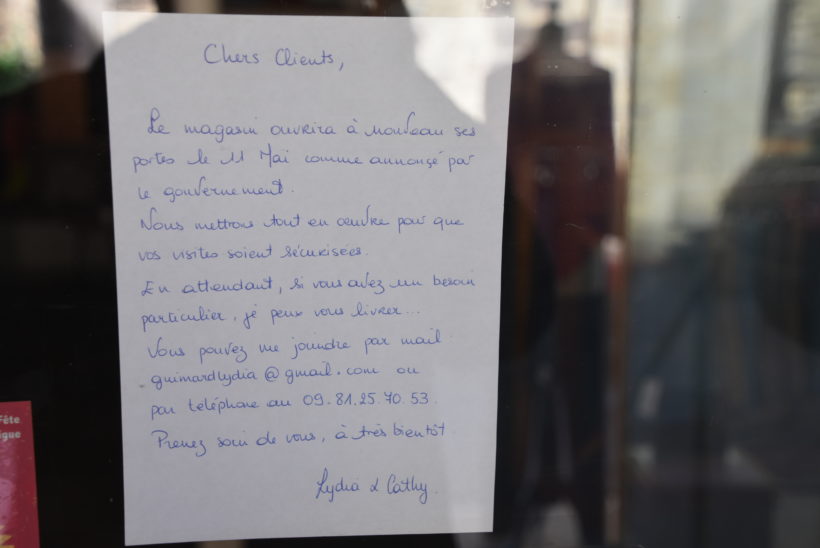 Chers Clients,
Le magasin ouvrira à nouveau ses
portes le 11 Mai comme annonçé par
le gouvernement.
Nous mettrons tout en œuvre pour que
vos visites soient sécurisées.
En attendant, si vous avez un besoin
particulier, je peux vous livrer...
Vous pouvez me joindre par mail
guimardlydia@gmail.com ou
par téléphone au 09.81.25.70.53.
Prenez soin de vous, à très bientôt
Lydia & Cathy.
Fête
igue